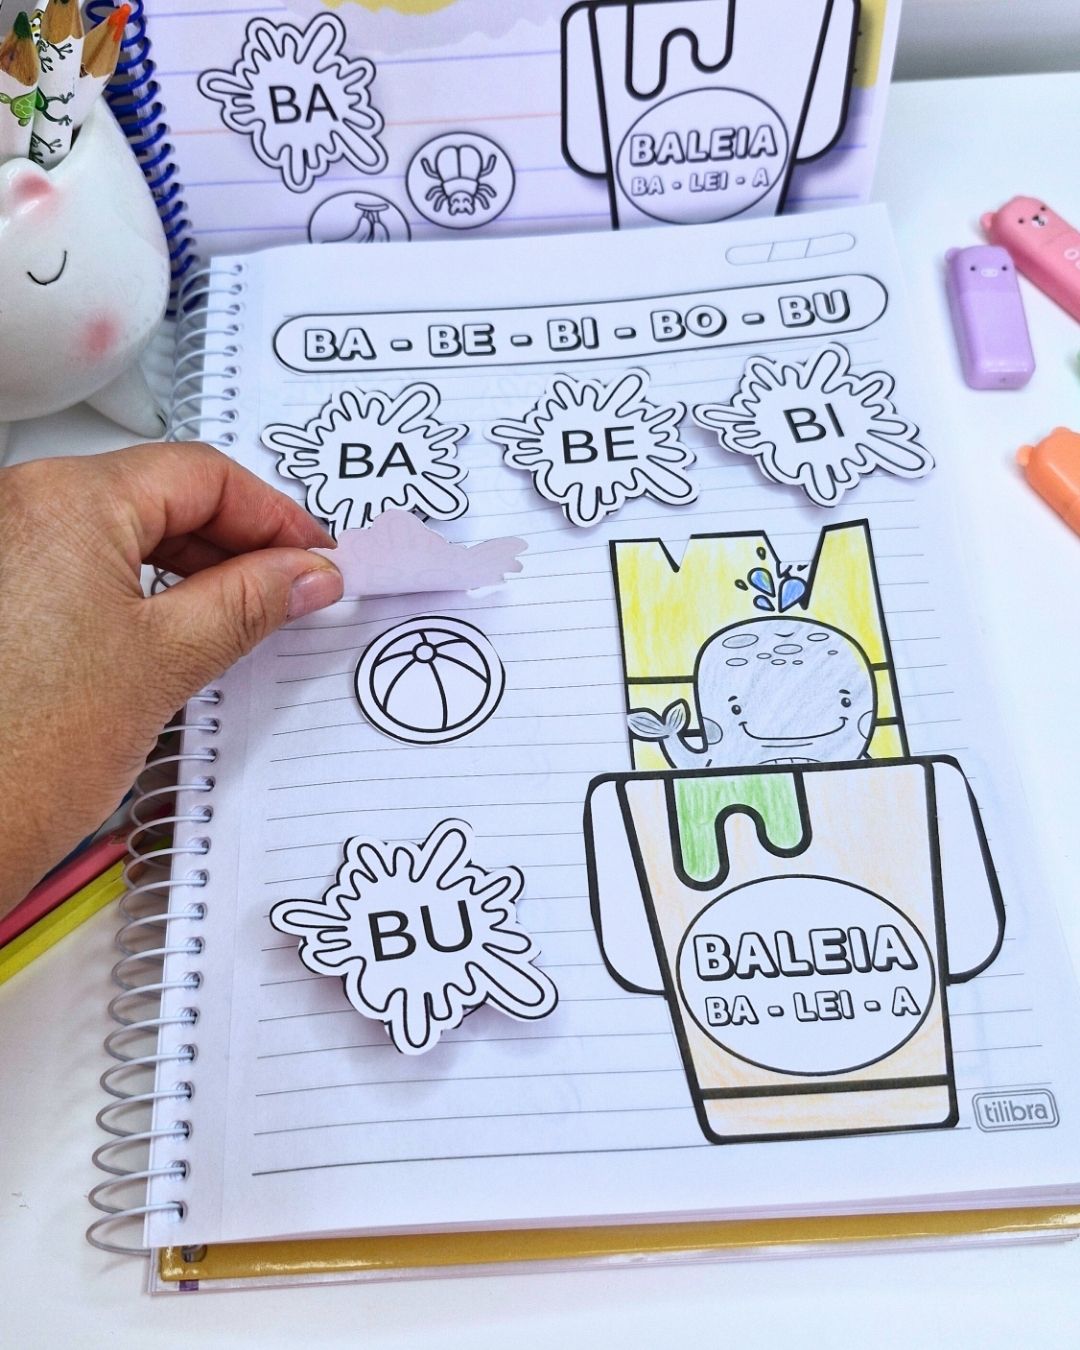 BA
BALEIA
BA - LEI - A
BA - BE - BI - BO - BU
BA
BE
BI
BU
BALEIA
BA - LEI - A
tilibra